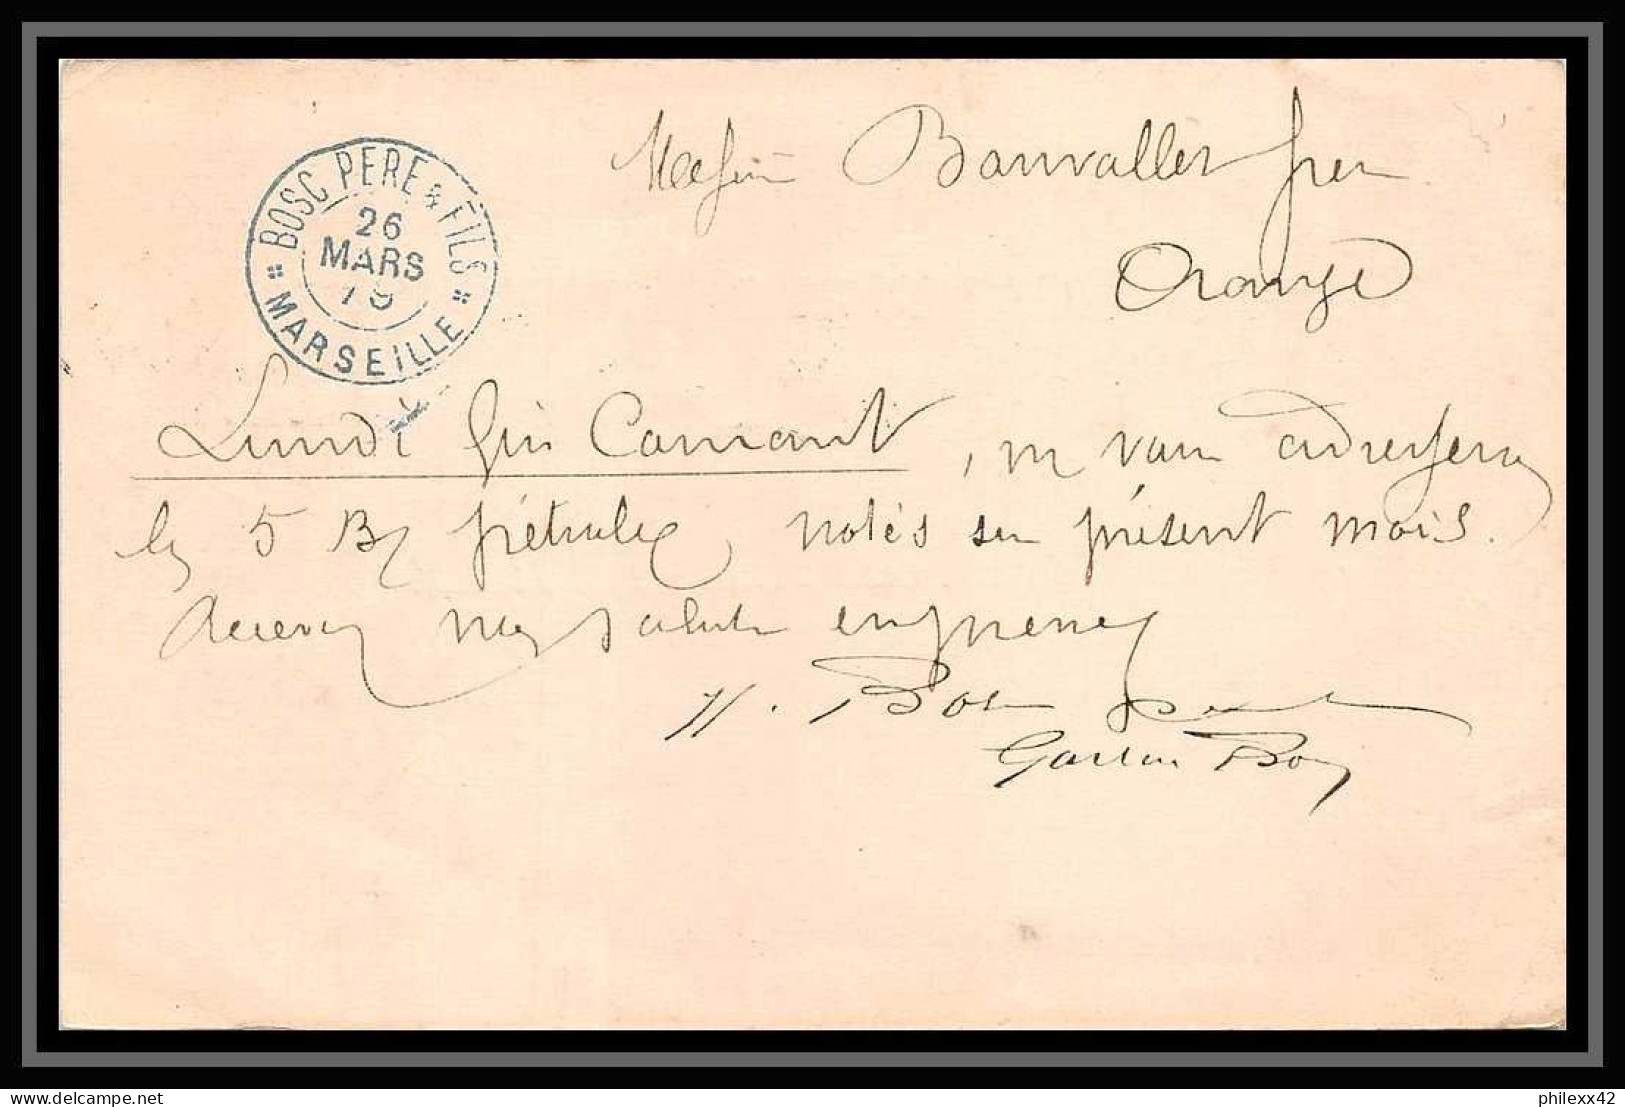 BOSC PERE & FILS
26
MARS
MARSEILLE
Messieurs Bonvallet frères
Orange
Lundi fin Courant, ns vous adresserons
les 5 Bls pétrole notés sur présent mois.
Recevez nos saluts empressés
Bosc père
Gaston Bosc
delcampe.net
philexx42